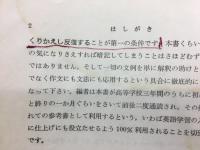 2　はしがき
くりかえし反復することが第一の条件です。本書くらい
の気になりさえすれば暗記してしまうことはさほどむず
ではありません。そして一切の文例を単に解釈の助けと
でなく作文にも文法にも応用するという具合に徹底的に
なって下さい。編者は本書が高等学校三年間のうちに初
と終りの一か月ぐらいをさいて前後に度通読され、その
参考書として利用されるという、いわば英語学習の
に仕上げにも役立たせるよう100％利用されることを切望
す。